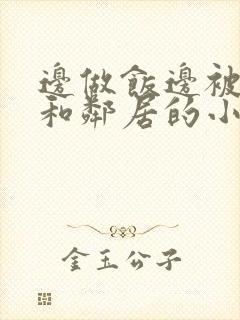 邊做飯邊被
和鄰居的小
金玉公子